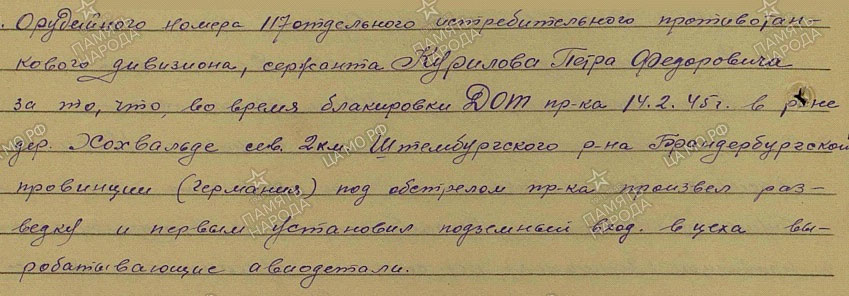 . Орудийного номера 117 отдельного истребительного противотан-
кового дивизиона, сержанта Курилова Петра Федоровича
за то, что, во время блакировки ДОТ пр-ка 14.2.45г. в р-не
дер. Хохвальде сев. 2 км. Штембургского р-на Брандербургской
провинции (Германия) под обстрелом пр-ка произвел раз-
ведку и первым установил подземный вход. в цеха вы-
робатывающие авиодетали.